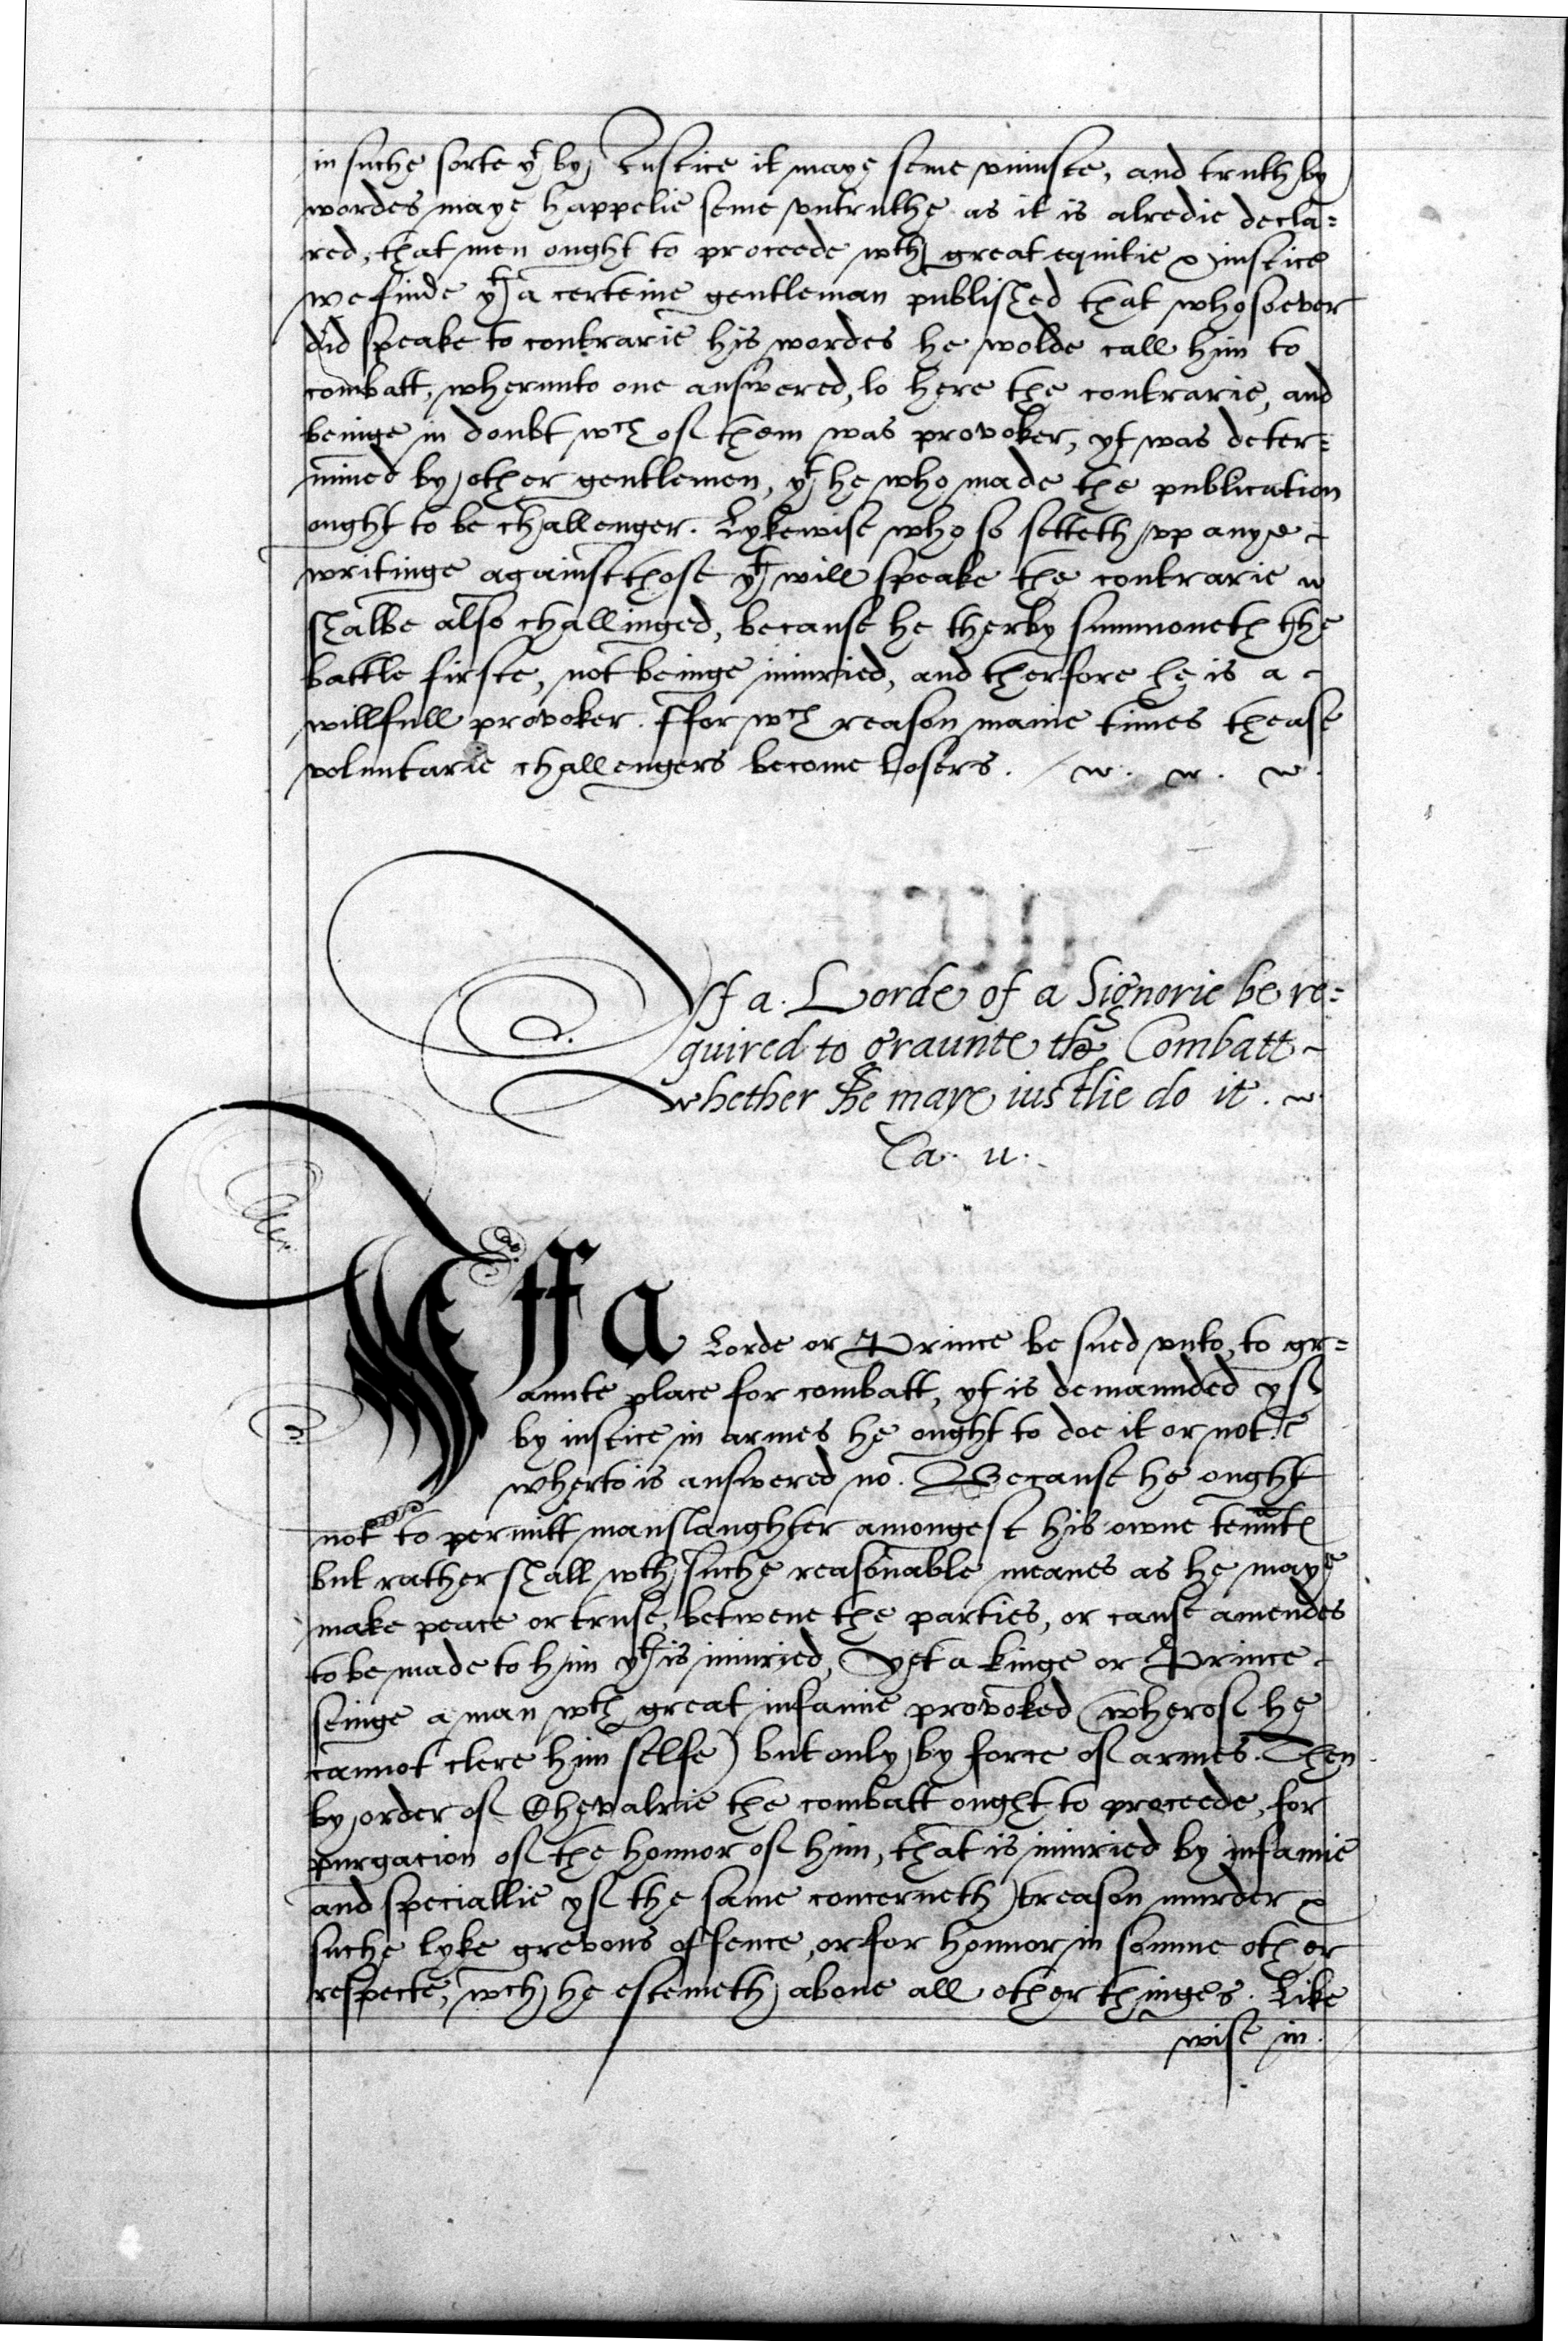 in suche sorte yt by Iustice it maye seme vniuste, and truth by
wordes maye happelie seme vntruthe as it is alredie decla=
red, that men ought to proceede wth great equitie & iustice
we finde yt a certeine gentleman published that whosoever
did speake to contrarie his wordes he wolde call him to
combatt, wherunto one answered, lo here the contrarie, and
beinge in doubt wch of them was provoker, yt was deter=
mined by other gentlemen, yt he who made the publication
ought to be challenger. Lykewise who so setteth vp anye
writinge against those yt will speake the contrarie
shalbe also challinged, because he therby summoneth the
battle firste, not beinge iniuried, and therfore he is a
willfull provoker. ffor wch reason manie times thease
voluntarie challengers become losers.
Yf a Lorde of a Signorie be re=
quired to graunte the Combatt
whether he maye iustlie do it.
Ca. ii.
Yff a Lorde or Prince be sued vnto, to gr=
aunte place for combatt, yt is demaunded yf
by iustice in armes he ought to doe it or note
wherto is answered no. Because he ought
not to permitt manslaughter amongest his owne
but rather shall wth suche reasonable meanes as he maye
make peace or truse, betwene the parties, or cause amendes
to be made to him yt is iniuried, Yet a kinge or Prince
seinge a man wth great infamie provoked (wherof he
cannot clere him selfe) but only by force of armes. Then
by order of Chevalrie the combatt ought to proceede, for
purgacion of the honnor of him, that is iniuried by infamie
and speciallie yf the same concerneth treason murder &
suche lyke grevous offence, or for honnor in somme other
respecte, wch he estemeth aboue all other thinges. Like
wise in